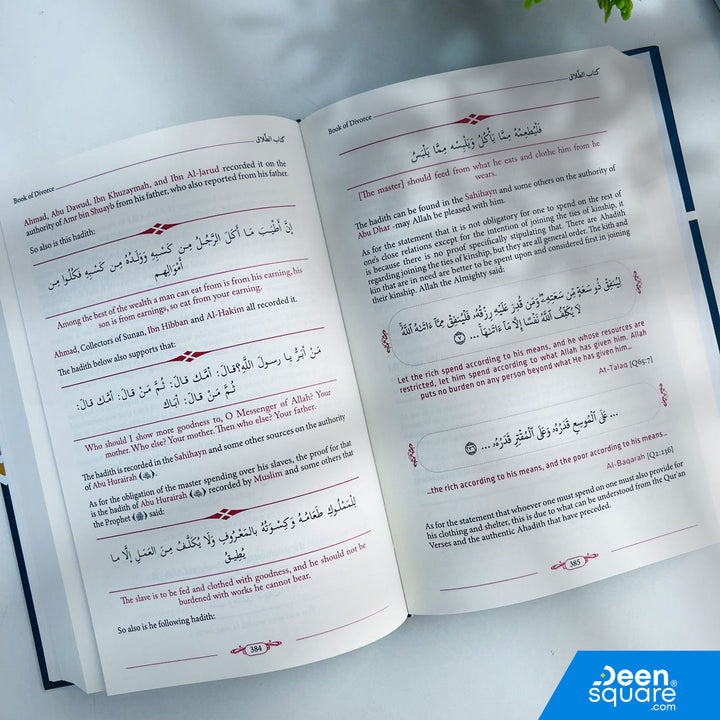 Book of Divorce
كتاب الطّلاق
Ahmad, Abu Dawud, Ibn Khuzaymah, and Ibn Al-Jarud recorded it on the
authority of Amr bin Shuayb from his father, who also reported from his father.
So also is this hadith:
إِنَّ أَطْيَبَ مَا أَكَلَ الرَّجُلُ مِن كَسْبِهِ وَوَلَدُهُ مِن كَسْبِهِ فَكُلُوا مِن
أَمْوَالِهِم
Among the best of the wealth a man can eat from is from his earning, his
son is from earnings, so eat from your earning.
Ahmad, Collectors of Sunan, Ibn Hibban and Al-Hakim all recorded it.
The hadith below also supports that:
مَنْ أبَرُّ يا رسولَ اللَّهِ؟قالَ: أمَّك قالَ: ثُمَّ مَنْ قالَ: أمَّك قالَ:
ثُمَّ مَنْ قالَ: أباكَ
Who should I show more goodness to, O Messenger of Allah? Your
mother. Who else? Your mother. Then who else? Your father.
The hadith is recorded in the Sahihayn and some other sources on the authority
of Abu Hurairah (ﷺ).
As for the obligation of the master spending over his slaves, the proof for that
is the hadith of Abu Hurairah (ﷺ) recorded by Muslim and some others that
the Prophet (ﷺ) said:
لِلْمَمْلُوكِ طَعَامُهُ وَكِسْوَتُهُ بالمَعْرُوفِ وَلَا يُكَلَّفُ مِنَ العَمَلِ إلَّا ما
يُطِيقُ
The slave is to be fed and clothed with goodness, and he should not be
burdened with works he cannot bear.
So also is he following hadith:
384
Book of Divorce
كتاب الطّلاق
فَلْيُطْعِمْهُ مِمَّا يَأْكُلُ وَيَلْبِسْه مِمَّا يَلْبَسُ
[The master] should feed from what he eats and clothe him from he
wears.
The hadith can be found in the Sahihayn and some others on the authority of
Abu Dhar -may Allah be pleased with him.
As for the statement that it is not obligatory for one to spend on the rest of
one's close relations except for the intention of joining the ties of kinship, it
is because there is no proof specifically stipulating that. There are Ahadith
regarding joining the ties of kinship, but they are all general order. The kith and
kin that are in need are better to be spent upon and considered first in joining
their kinship. Allah the Almighty said:
لِيُنفِقْ ذُو سَعَةٍ مِّن سَعَتِهِۦ ۖ وَمَن قُدِرَ عَلَيْهِ رِزْقُهُۥ فَلْيُنفِقْ مِمَّآ ءَاتَىٰهُ ٱللَّهُ ۚ
لَا يُكَلِّفُ ٱللَّهُ نَفْسًا إِلَّا مَآ ءَاتَىٰهَا ۚ ... ٧
Let the rich spend according to his means, and he whose resources are
restricted, let him spend according to what Allah has given him. Allah
puts no burden on any person beyond what He has given him...
At-Talaq [Q65:7]
... عَلَى ٱلْمُوسِعِ قَدَرُهُۥ وَعَلَى ٱلْمُقْتِرِ قَدَرُهُۥ ... ٢٣٦
...the rich according to his means, and the poor according to his means...
Al-Baqarah [Q2:236]
As for the statement that whoever one must spend on one must also provide for
his clothing and shelter, this is due to what can be understood from the Qur'an
Verses and the authentic Ahadith that have preceded.
385
Deen
square®
.com